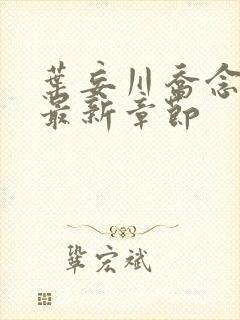 葉妄川喬念
最新章節
鞏宏斌